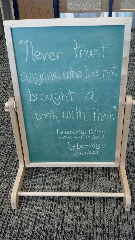 "Never trust
anyone who has not
brought a
book with them."
Lemony Snicket